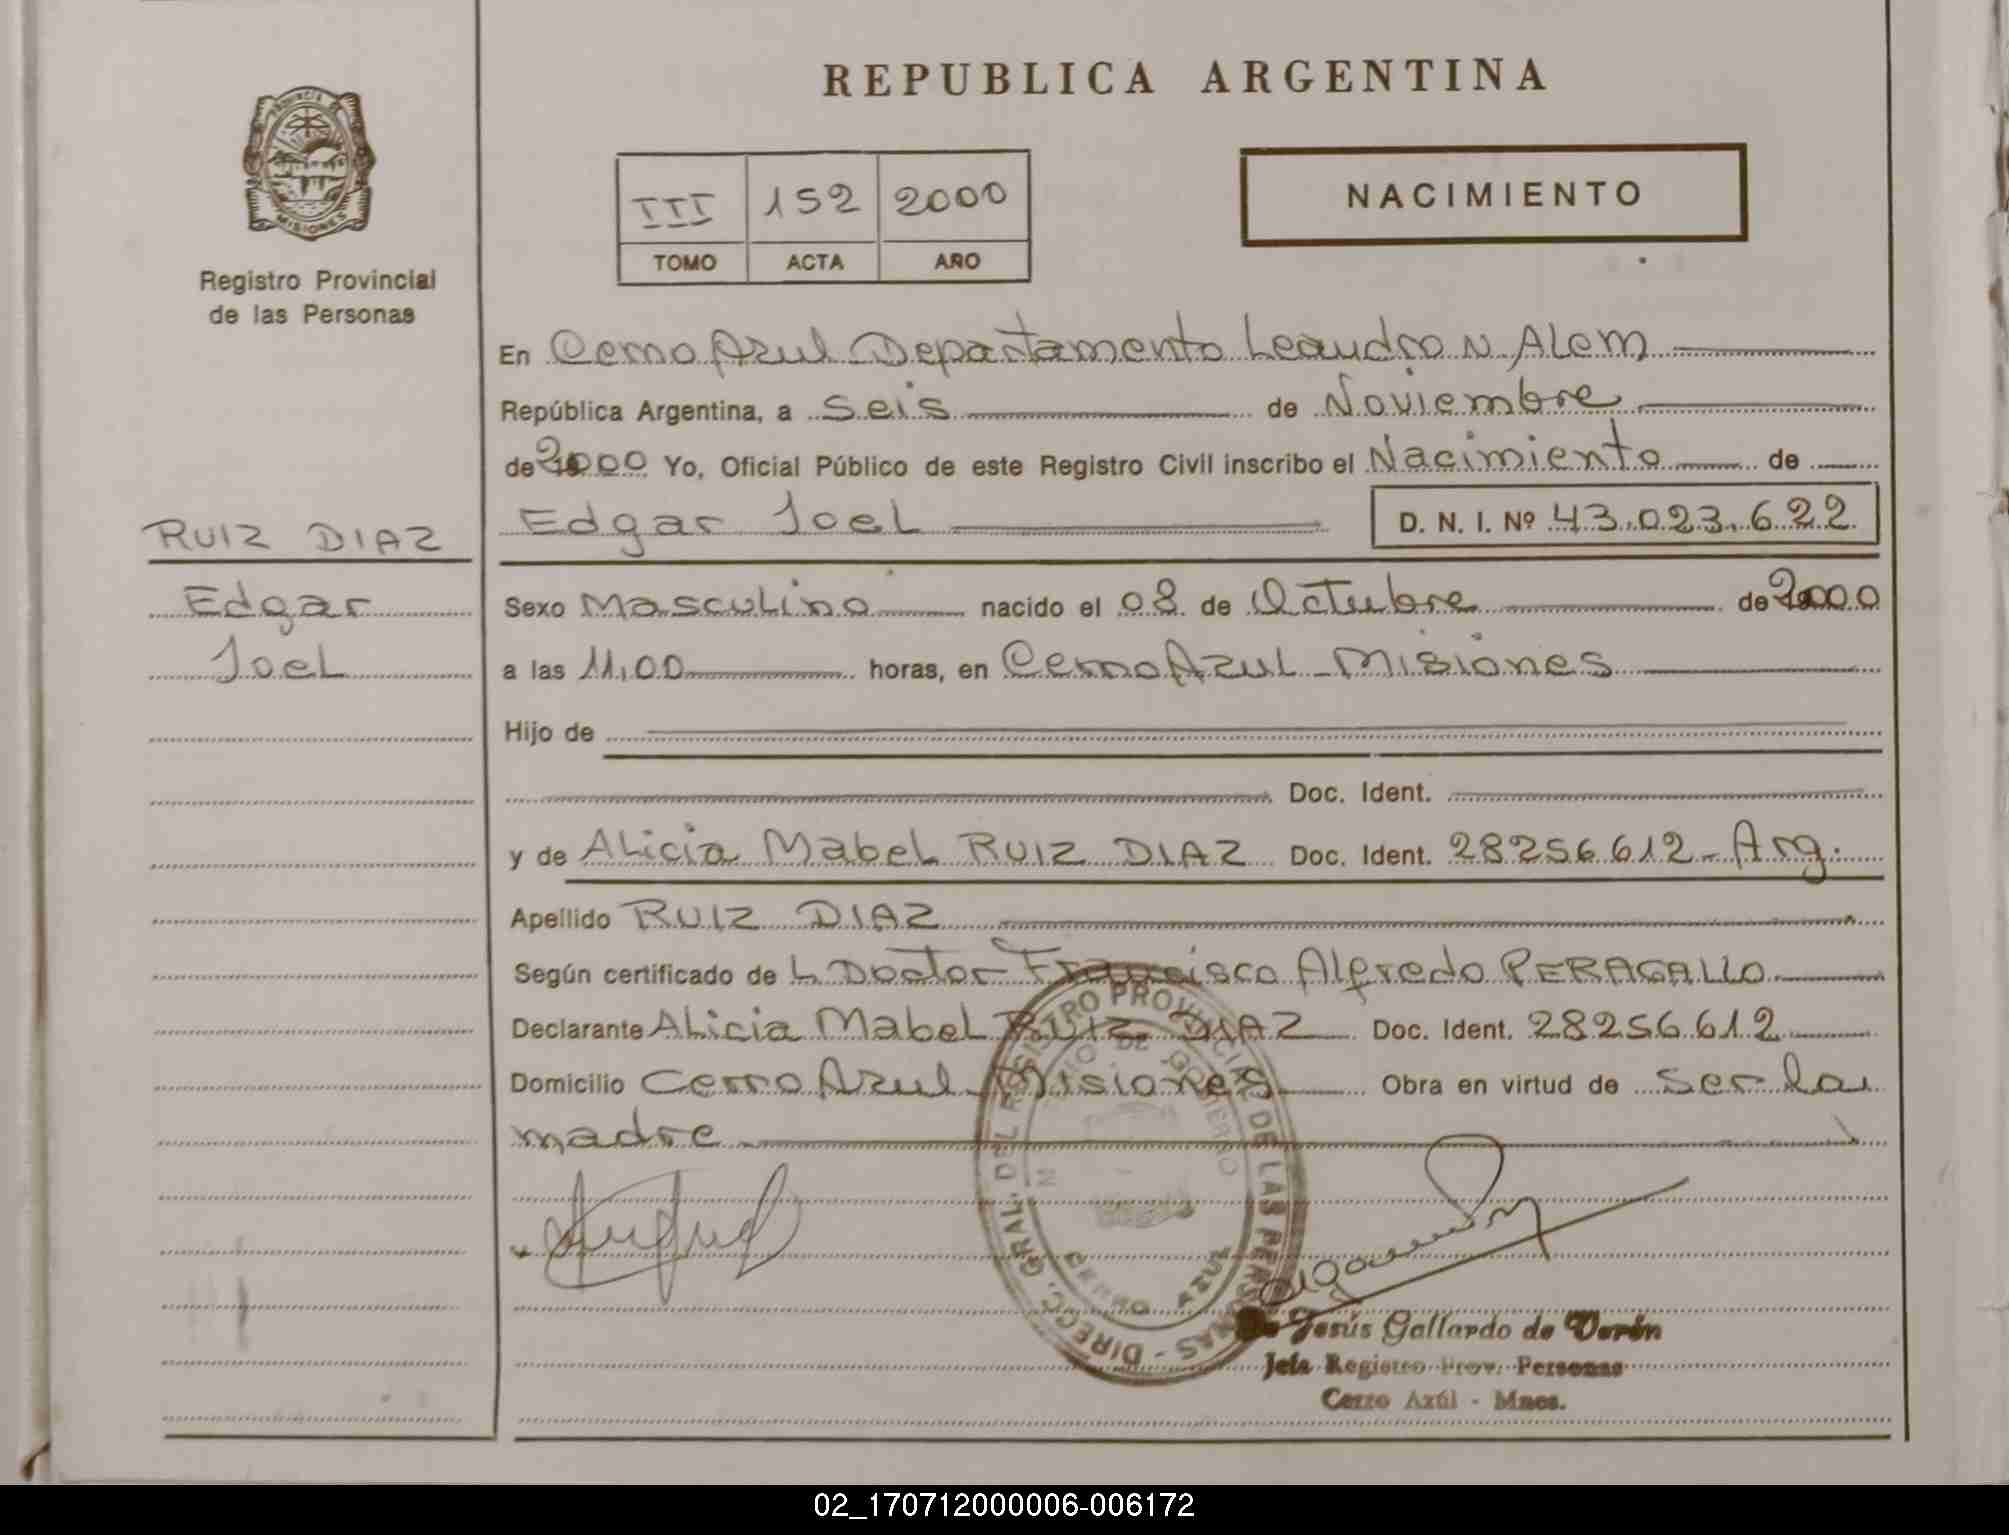 REPUBLICA ARGENTINA
PROVINCIA DE MISIONES
Registro Provincial
de las Personas
III 152 2000
TOMO ACTA AÑO
NACIMIENTO
En Cerro Azul Departamento Leandro N. Alem
República Argentina, a seis de Noviembre
de 2000 Yo, Oficial Público de este Registro Civil inscribo el Nacimiento de
Edgar Joel D. N. I. Nº 43.023.622
RUIZ DIAZ
Edgar
Joel
Sexo Masculino nacido el 08 de Octubre de 2000
a las 11,00 horas, en Cerro Azul - Misiones
Hijo de
Doc. Ident.
y de Alicia Mabel RUIZ DIAZ Doc. Ident. 28256612 - Arg.
Apellido RUIZ DIAZ
Según certificado de L Doctor Francisco Alfredo PERAGALLO
Declarante Alicia Mabel RUIZ DIAZ Doc. Ident. 28256612
Domicilio Cerro Azul - Misiones Obra en virtud de ser la
madre
DIRECC. GRAL. DEL REGISTRO PROVINCIAL DE LAS PERSONAS -
DE GOBIERNO
CERRO AZUL
de Jesús Gallardo de Verón
Jefa Registro Prov. Personas
Cerro Azúl - Mnes.
02_170712000006-006172